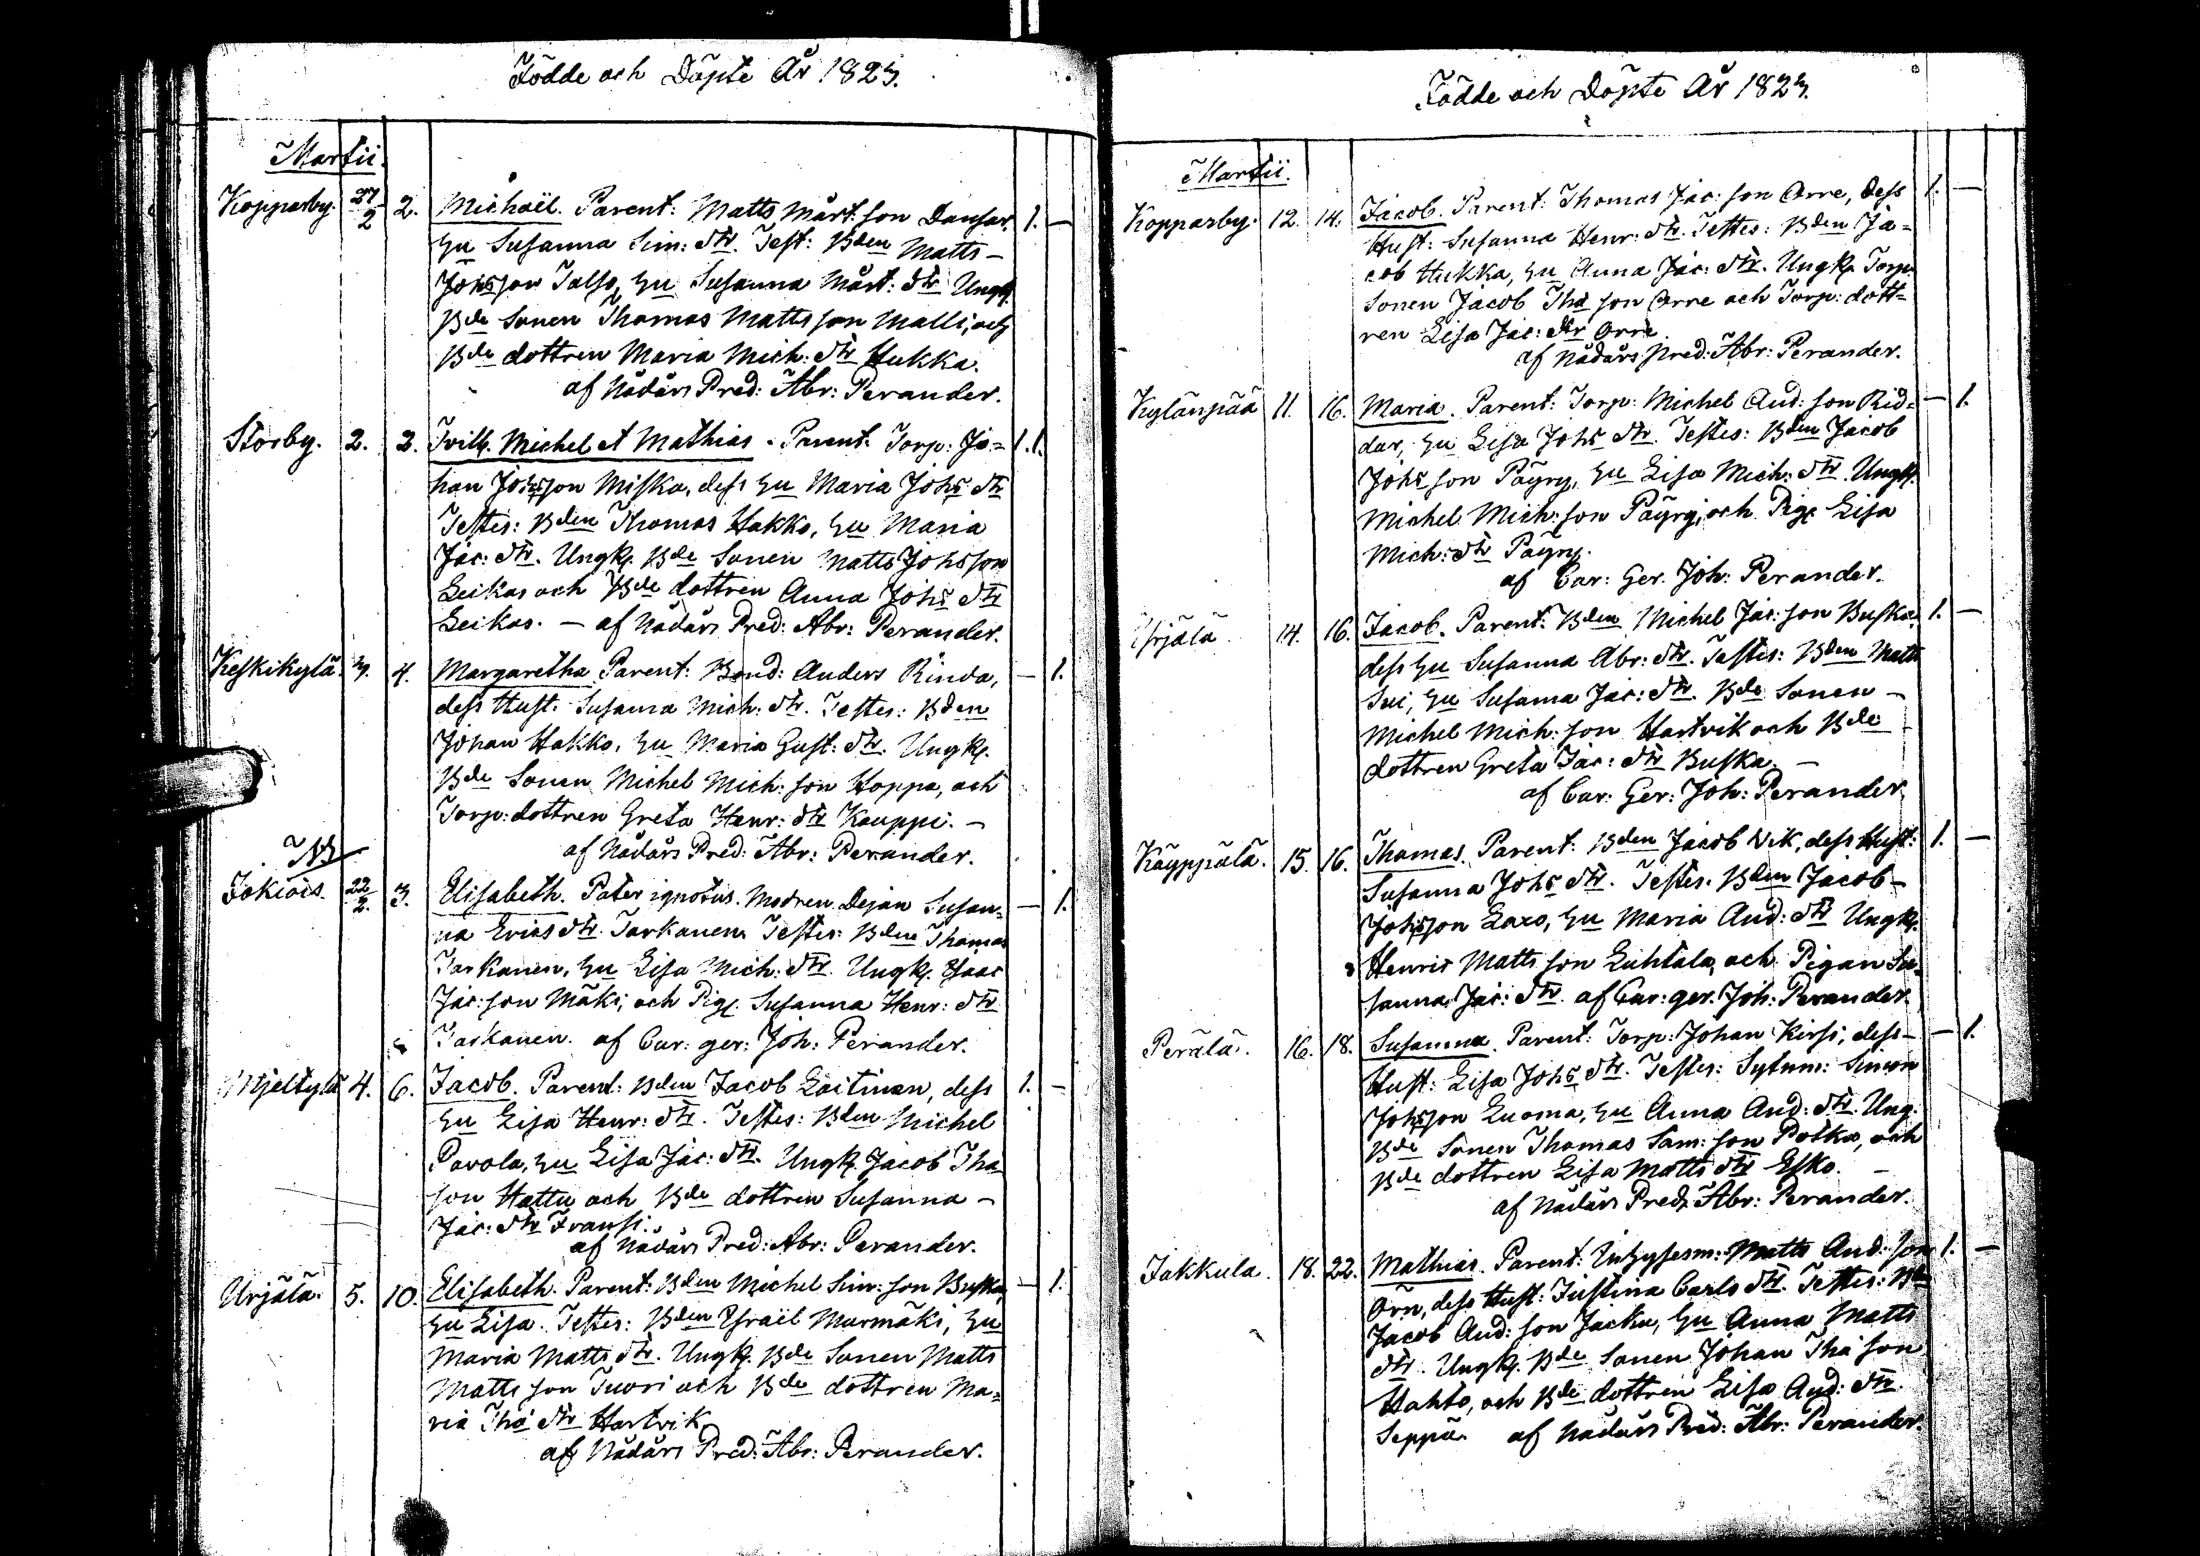 Födde och Döpte År 1823.
Martii.
Kopparby. 27/2 2. Michaël. Parent: Matts Mårt: son Dansar, 1. —
Hu Susanna Sim: dtr. Test: Bden Matts –
Johs son Talso, Hu Susanna Mårt: dtr Ungk.
Bde Sonen Thomas Matts son Malli, och
Bde dottren Maria Mich: dtr Hukka.
af Nådårs Pred: Abr: Perander.
Storby. 2. 2. Tvill. Michel et Mathias. Parent. Torp: Jo= 1. 1.
han Johs son Miska, dess Hu Maria Johs dtr
Testes: Bden Thomas Hakko, Hu Maria
Jac: dtr. Ungk. Bde Sonen Matts Johs son
Leikas och Bde dottren Anna Johs dtr
Leikas. – af Nådårs Pred: Abr: Perander.
Keskikylä. 3. 4. Margaretha Parent: Bond: Anders Rinda, — 1.
dess Hust. Susanna Mich: dtr. Testes: Bden
Johan Hakko, Hu Maria Gust: dtr. Ungk.
Bde Sonen Michel Mich: son Hoppa, och
Torp: dottren Greta Henr: dtr Kauppi. –
af Nådårs Pred: Abr: Perander.
Jokiois. 22/2. 3. Elisabeth. Pater ignotus. Modren Dejan Susan= — 1.
na Erics dtr. Tarkanen. Testes: Bden Thomas
Tarkanen, Hu Lisa Mich: dtr. Ungk. Isaac
Jac: son Mäki, och Pig. Susanna Henr: dtr
Tarkanen. af Cur: ger: Joh: Perander.
4. 6. Jacob. Parent: Bden Jacob Loitinen, dess 1. –
Hu Lisa Henr: dtr. Testes: Bden Michel
Pavola, Hu Lisa Jac: dtr. Ungk. Jacob Tha
son Hattu och Bde dottren Susanna –
Jac: dtr Fransi.
af Nådårs Pred: Abr: Perander.
Urjälä. 5. 10. Elisabeth. Parent: Bden Michel Sim: son Buska, — 1.
Hu Lisa. Testes: Bden Israël Murmäki, Hu
Maria Matts dtr. Ungk. Bde Sonen Matts
Matts son Tuori och Bde dottren Ma=
ria Tha dtr Hartvik
af Nådårs Pred: Abr: Perander.
Födde och Döpte År 1823.
Martii.
Kopparby. 12. 14. Jacob. Parent: Thomas Jac: son Orre, Dess 1. —
Hust: Susanna Henr: dtr. Testes: Bden Ja=
cob Hukka, Hu Anna Jac: dtr. Ungk. Torp.
Sonen Jacob Tha son Orre och Torp: dott=
ren Lisa Jac: dtr Orre
af Nådårs Pred: Abr: Perander.
Kylänpää 11. 16. Maria. Parent: Torp: Michel And: son Rid= — 1.
dar, Hu Lisa Johs dtr. Testes: Bden Jacob
Johs son Päyry, Hu Lisa Mich: dtr. Ungk.
Michel Mich: son Päyry, och Pig. Lisa
Mich: dtr Päyry.
af Cur: Ger. Joh: Perander.
Urjälä. 14. 16. Jacob. Parent: Bden Michel Jac: son Buska. 1. —
dess Hu Susanna Abr: dtr. Testes: Bden Matts
Sui, Hu Susanna Jac: dtr. Bde Sonen –
Michel Mich: son Hartvik och Bde
dottren Greta Jac: dtr Buska. –
af Cur: Ger: Joh: Perander.
Käyppälä. 15. 16. Thomas. Parent: Bden Jacob Vik, dess Hust: 1. —
Susanna Johs dtr. Testes. Bden Jacob –
Johs son Laxo, Hu Maria And: dtr Ungk.
Henric Matts son Luhtala, och Pigan Su=
sanna Jac: dtr. af Cur: ger. Joh: Perander.
Perälä. 16. 18. Susanna. Parent: Torp: Johan Kirsi, dess – — 1.
Hust: Lisa Johs dtr. Testes: Sytnin: Simon
Johs son Luoma, Hu Anna And: dtr. Ung.
Bde Sonen Thomas Sam: son Potka, och
Bde dottren Lisa Matts dtr Esko. –
af Nådårs Pred: Abr: Perander.
Jakkula. 18. 22. Mathias. Parent: Inhysesm: Matts And: son 1. —
Örn, dess Hust: Justina Carls dtr. Testes: Bden
Jacob And: son Jacku, Hu Anna Matts
dtr. Ungk. Bde Sonen Johan Tha son
Hahto, och Bde dottren Lisa And: dtr.
Seppä. af Nådårs Pred: Abr: Perander.